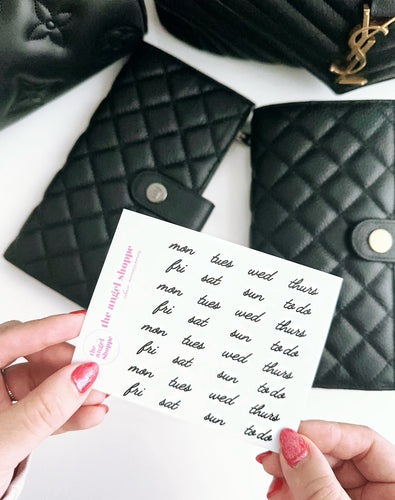 YSL
the angel shoppe
the
angel
shoppe
mon tues wed thurs
fri sat sun to do
mon tues wed thurs
fri sat sun to do
mon tues wed thurs
fri sat sun to do
mon tues wed thurs
fri sat sun to do